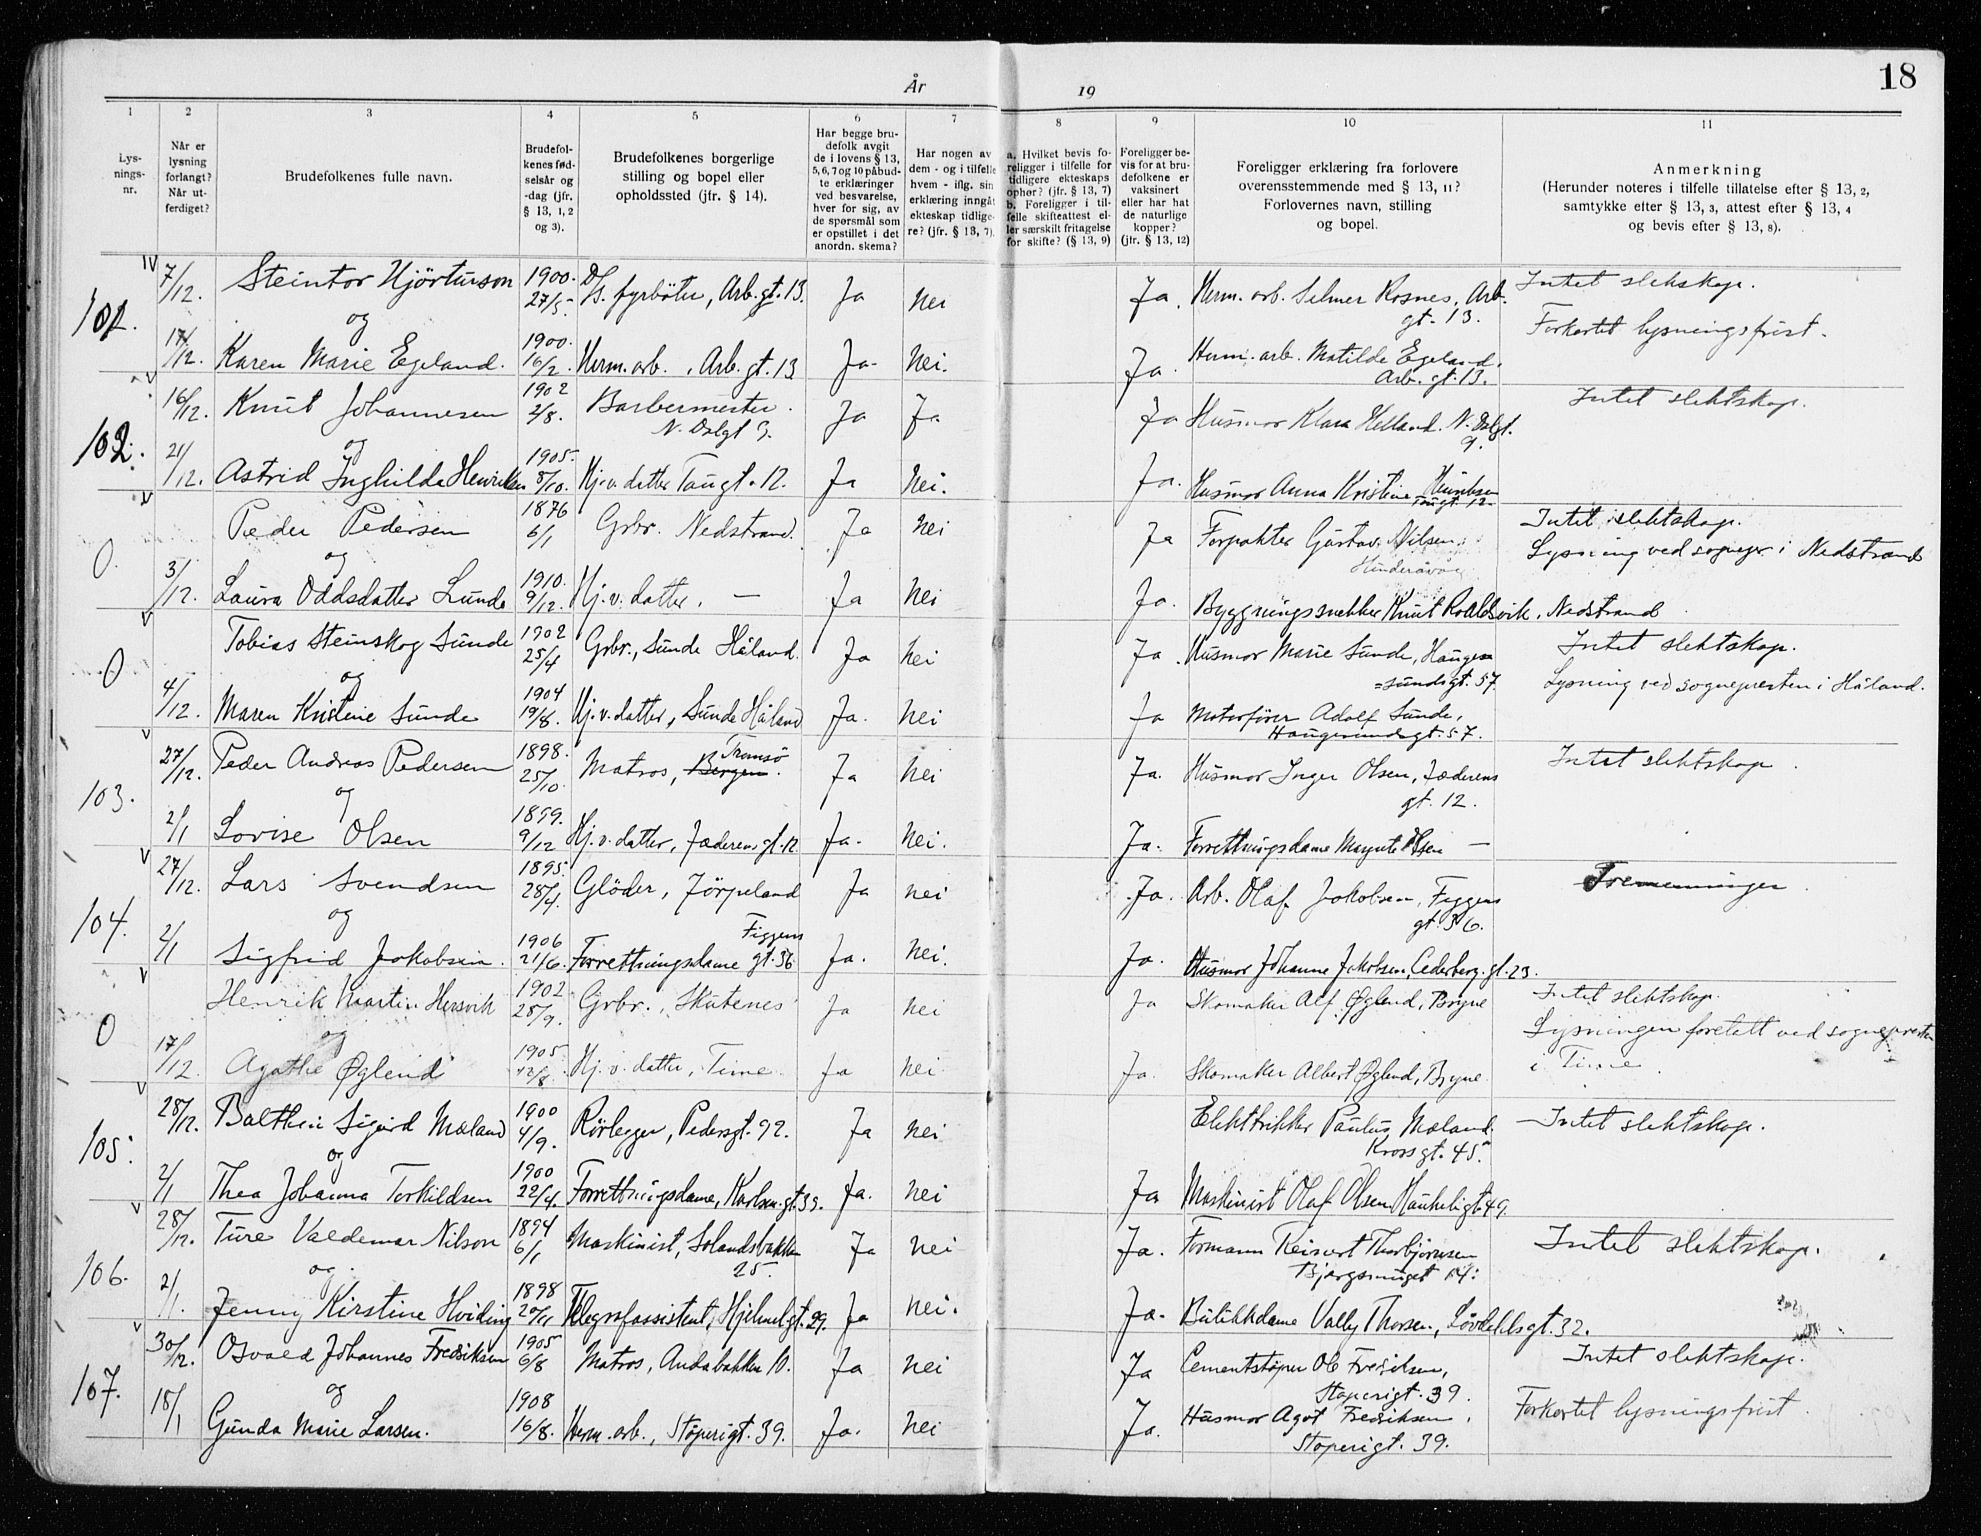 År 19
18
1 2 3 4 5 6 7 8 9 10 11
Lys-
nings-
nr.
Når er
lysning
forlangt?
Når ut-
ferdiget?
Brudefolkenes fulle navn.
Brudefol-
kenes fød-
selsår og
-dag (jfr.
§ 13, 1, 2
og 3).
Brudefolkenes borgerlige
stilling og bopel eller
opholdssted (jfr. § 14).
Har begge bru-
defolk avgit
de i lovens § 13,
5, 6, 7 og 10 påbud-
te erklæringer
ved besvarelse,
hver for sig, av
de spørsmål som
er opstillet i det
anordn. skema?
Har nogen av
dem - og i tilfelle
hvem - iflg. sin
erklæring inngåt
ekteskap tidlige-
re? (jfr. § 13, 7).
a. Hvilket bevis fo-
religger i tilfelle for
tidligere ekteskaps
ophør? (jfr. § 13, 7)
b. Foreligger i til-
felle skifteattest el-
ler særskilt fritagelse
for skifte? (§ 13, 9)
Foreligger be-
vis for at bru-
defolkene er
vaksinert
eller har hat
de naturlige
kopper?
(jfr. § 13, 12)
Foreligger erklæring fra forlovere
overensstemmende med § 13, 11?
Forlovernes navn, stilling
og bopel.
Anmerkning
(Herunder noteres i tilfelle tillatelse efter § 13, 2,
samtykke efter § 13, 3, attest efter § 13, 4
og bevis efter § 13, 8).
101. 7/12. Steintor Hjörturson 1900. 27/5 fyrbøter, Arb.gt. 13. Ja nei Ja. Herm. arb. Selmer Rosnes, Arb.
gt. 13. Intet slektskap.
og Forkortet lysningsfrist.
17/12. Karen Marie Egeland. 1900. 16/2. Herm. arb., Arb.gt. 13 Ja. Nei. Ja. Herm. arb. Matilde Egeland,
Arb. gt. 13.
102. 16/12. Knut Johannesen 1902 2/8. Barbermester.
N. Dalgt 9. Ja Ja Ja Husmor Klara Helland. N. Dalgt.
9. Intet slektskap.
og
21/12. Astrid Inghilda Henriksen 1905. 8/10. Hj. v. datter Taugt. 12. Ja Nei. Ja. Husmor Anna Kristine Henriksen
Taugt. 12.
0. Peder Pedersen 1876 6/1 Grbr. Nedstrand. Ja Nei Ja Forpakter Gustav Nilsen,
Hinderåvåg Intet slektskap.
og Lysning ved sognepr i Nedstrand
3/12. Laura Oddsdatter Lunde 1910. 9/12. Hj. v. datter. — Ja Nei Ja. Byggningssnekker Knut Roaldsvik, Nedstrand
0 Tobias Steinskog Sunde 1902 25/4 Grbr., Sunde Håland. Ja Nei Ja. Husmor Marie Sunde, Hauge-
=sundsgt. 57. Intet slektskap.
og Lysning ved sognepresten i Håland.
4/12. Maren Kristine Sunde 1904 19/8. Hj. v. datter, Sunde Håland Ja. Nei Ja Motorfører Adolf Sunde,
Haugesundsgt. 57.
103. 27/12. Peder Andreas Pedersen 1898. 25/10. Matros, Bergen. Tromsö Ja Nei Ja. Husmor Inger Olsen, Jæderens
gt. 12. Intet slektskap.
og
2/1 Lovise Olsen 1899. 9/12 Hj. v. datter, Jæderens gt. 12 Ja. Nei. Ja. Forretningsdame Olsen —
104. 27/12. Lars Svendsen 1895. 28/4. Glöder, Jörpeland Ja nei Ja. Arb. Olaf Jakobsen, Figgens
gt. 36. Tremenninger.
og
2/1 Sigfrid Jakobsen. 1906 21/6. Forretningsdame Figgens
gt. 36 Ja. nei. Ja. Husmor Johanne Jakobsen, Cederberg.gt. 23.
0 Henrik Martin Hersvik 1902 28/9. Grbr., Skutenes Ja nei Ja Skomaker Alf Øglend, Bryne Intet slektskap.
og Lysningen foretatt ved sognepresten
17/12 Agathe Øglend 1905 Hj. v. datter, Time Ja nei. Ja. Skomaker Albert Øglend, Bryne. i Time.
105. 28/12. Sigurd Mæland 1900 4/9. Rörlegger, Pedersgt. 92. Ja nei Elektrikker Paulus Mæland.
Krossgt. 45. Intet slektskap.
og
2/1 Thea Johanna Torkildsen 1900 22/4. Forretningsdame, Karlsm.gt. 33. Ja. nei Ja Maskinist Olaf Olsen Haukeligt. 49.
106. 28/12. Ture Valdemar Nilson 1894 6/1 Maskinist, Solandsbakken
25. Ja nei Ja. Formann Reinert Thorbjörnsen
Bjergsmuget 14. Intet slektskap.
og
2/1. Jenny Kirstine Hviding 1898 20/11 Telegrafassistent, Hjelmelgt. 29. Ja nei. Ja. Butikkdame Vally Thorsen, Lövdahlsgt. 32.
107. 30/12. Osvald Johannes Fredriksen 1905 6/8 Matros, Andabakken 10. Ja nei Ja Cementstøper Ole Fredriksen,
Støperigt. 39. Intet slektskap.
og
18/1 Gunda Marie Larsen. 1908 16/8. Herm. arb., Støperigt. 39. Ja. nei Ja. Husmor Agot Fredriksen,
Støperigt. 39. Forkortet lysningsfrist.